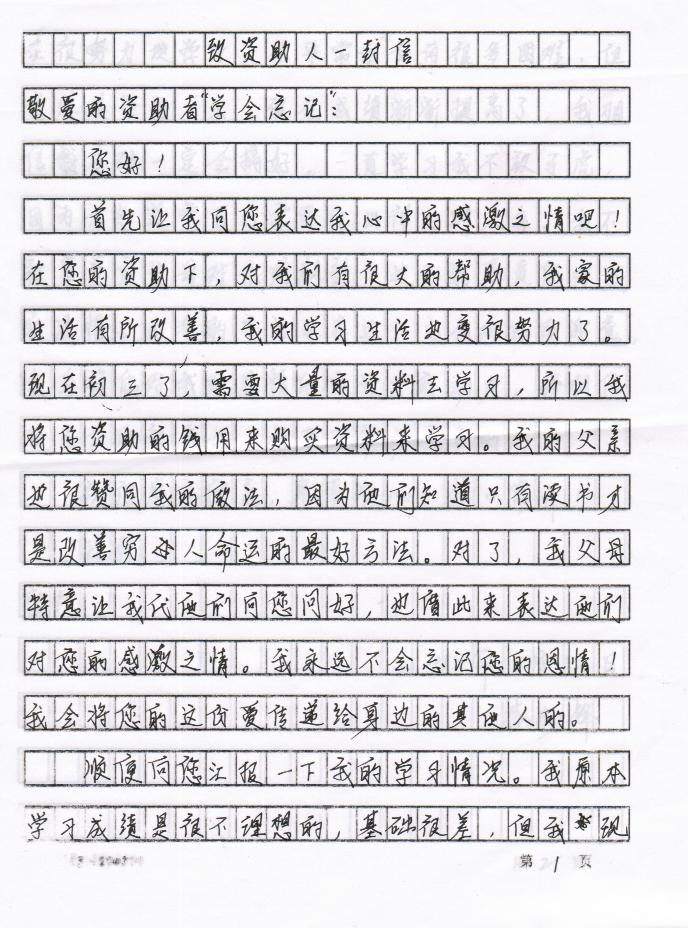 致资助人一封信
敬爱的资助者“学会忘记”：
您好！
首先让我向您表达我心中的感激之情吧！
在您的资助下，对我们有很大的帮助，我家的
生活有所改善，我的学习生活也变很努力了。
现在初三了，需要大量的资料去学习，所以我
将您资助的钱用来购买资料来学习。我的父亲
也很赞同我的做法，因为他们知道只有读书才
是改善穷人命运的最好方法。对了，我父母
特意让我代他们向您问好，也借此来表达他们
对您的感激之情。我永远不会忘记您的恩情！
我会将您的这份爱传递给身边的其他人的。
顺便向您汇报一下我的学习情况。我原本
学习成绩是很不理想的，基础很差，但我现
第 21 页